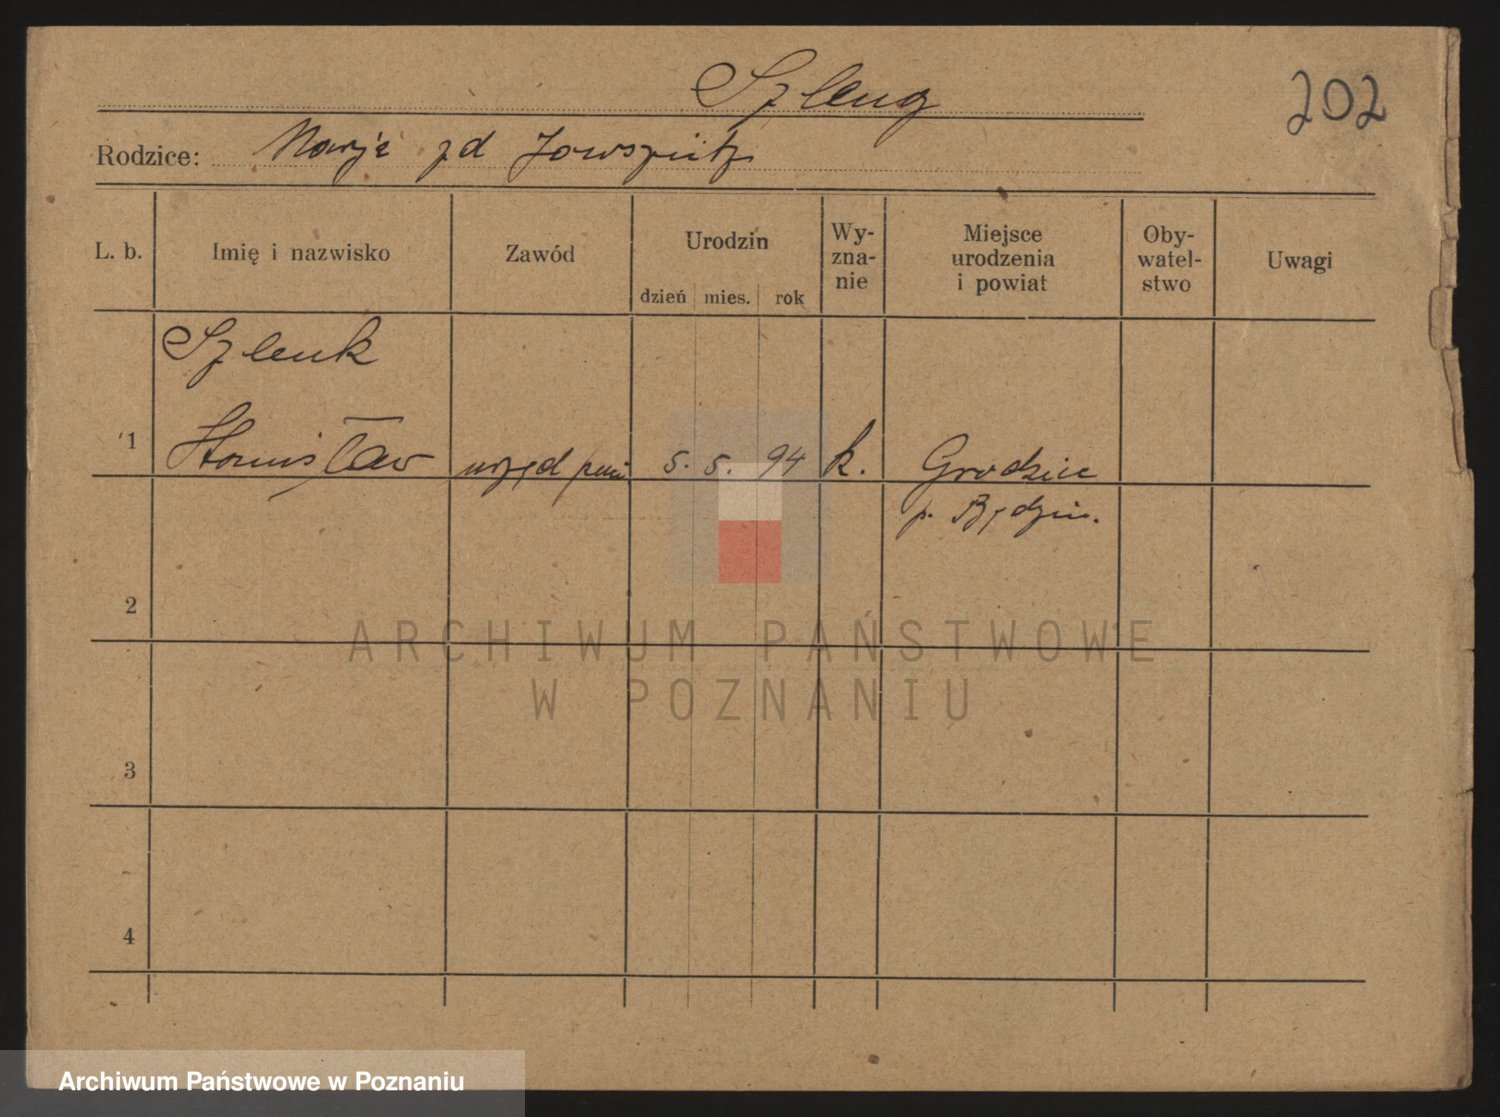 Szleng
202
Rodzice: zd
L. b. Imię i nazwisko Zawód Urodzin dzień mies. rok Wy-
zna-
nie Miejsce
urodzenia
i powiat Oby-
watel-
stwo Uwagi
Szlenk
1 Stanisław urzęd 5. 5. 94 k. Grodziec
p. Będzin.
2
3
4
ARCHIWUM PAŃSTWOWE
W POZNANIU
Archiwum Państwowe w Poznaniu